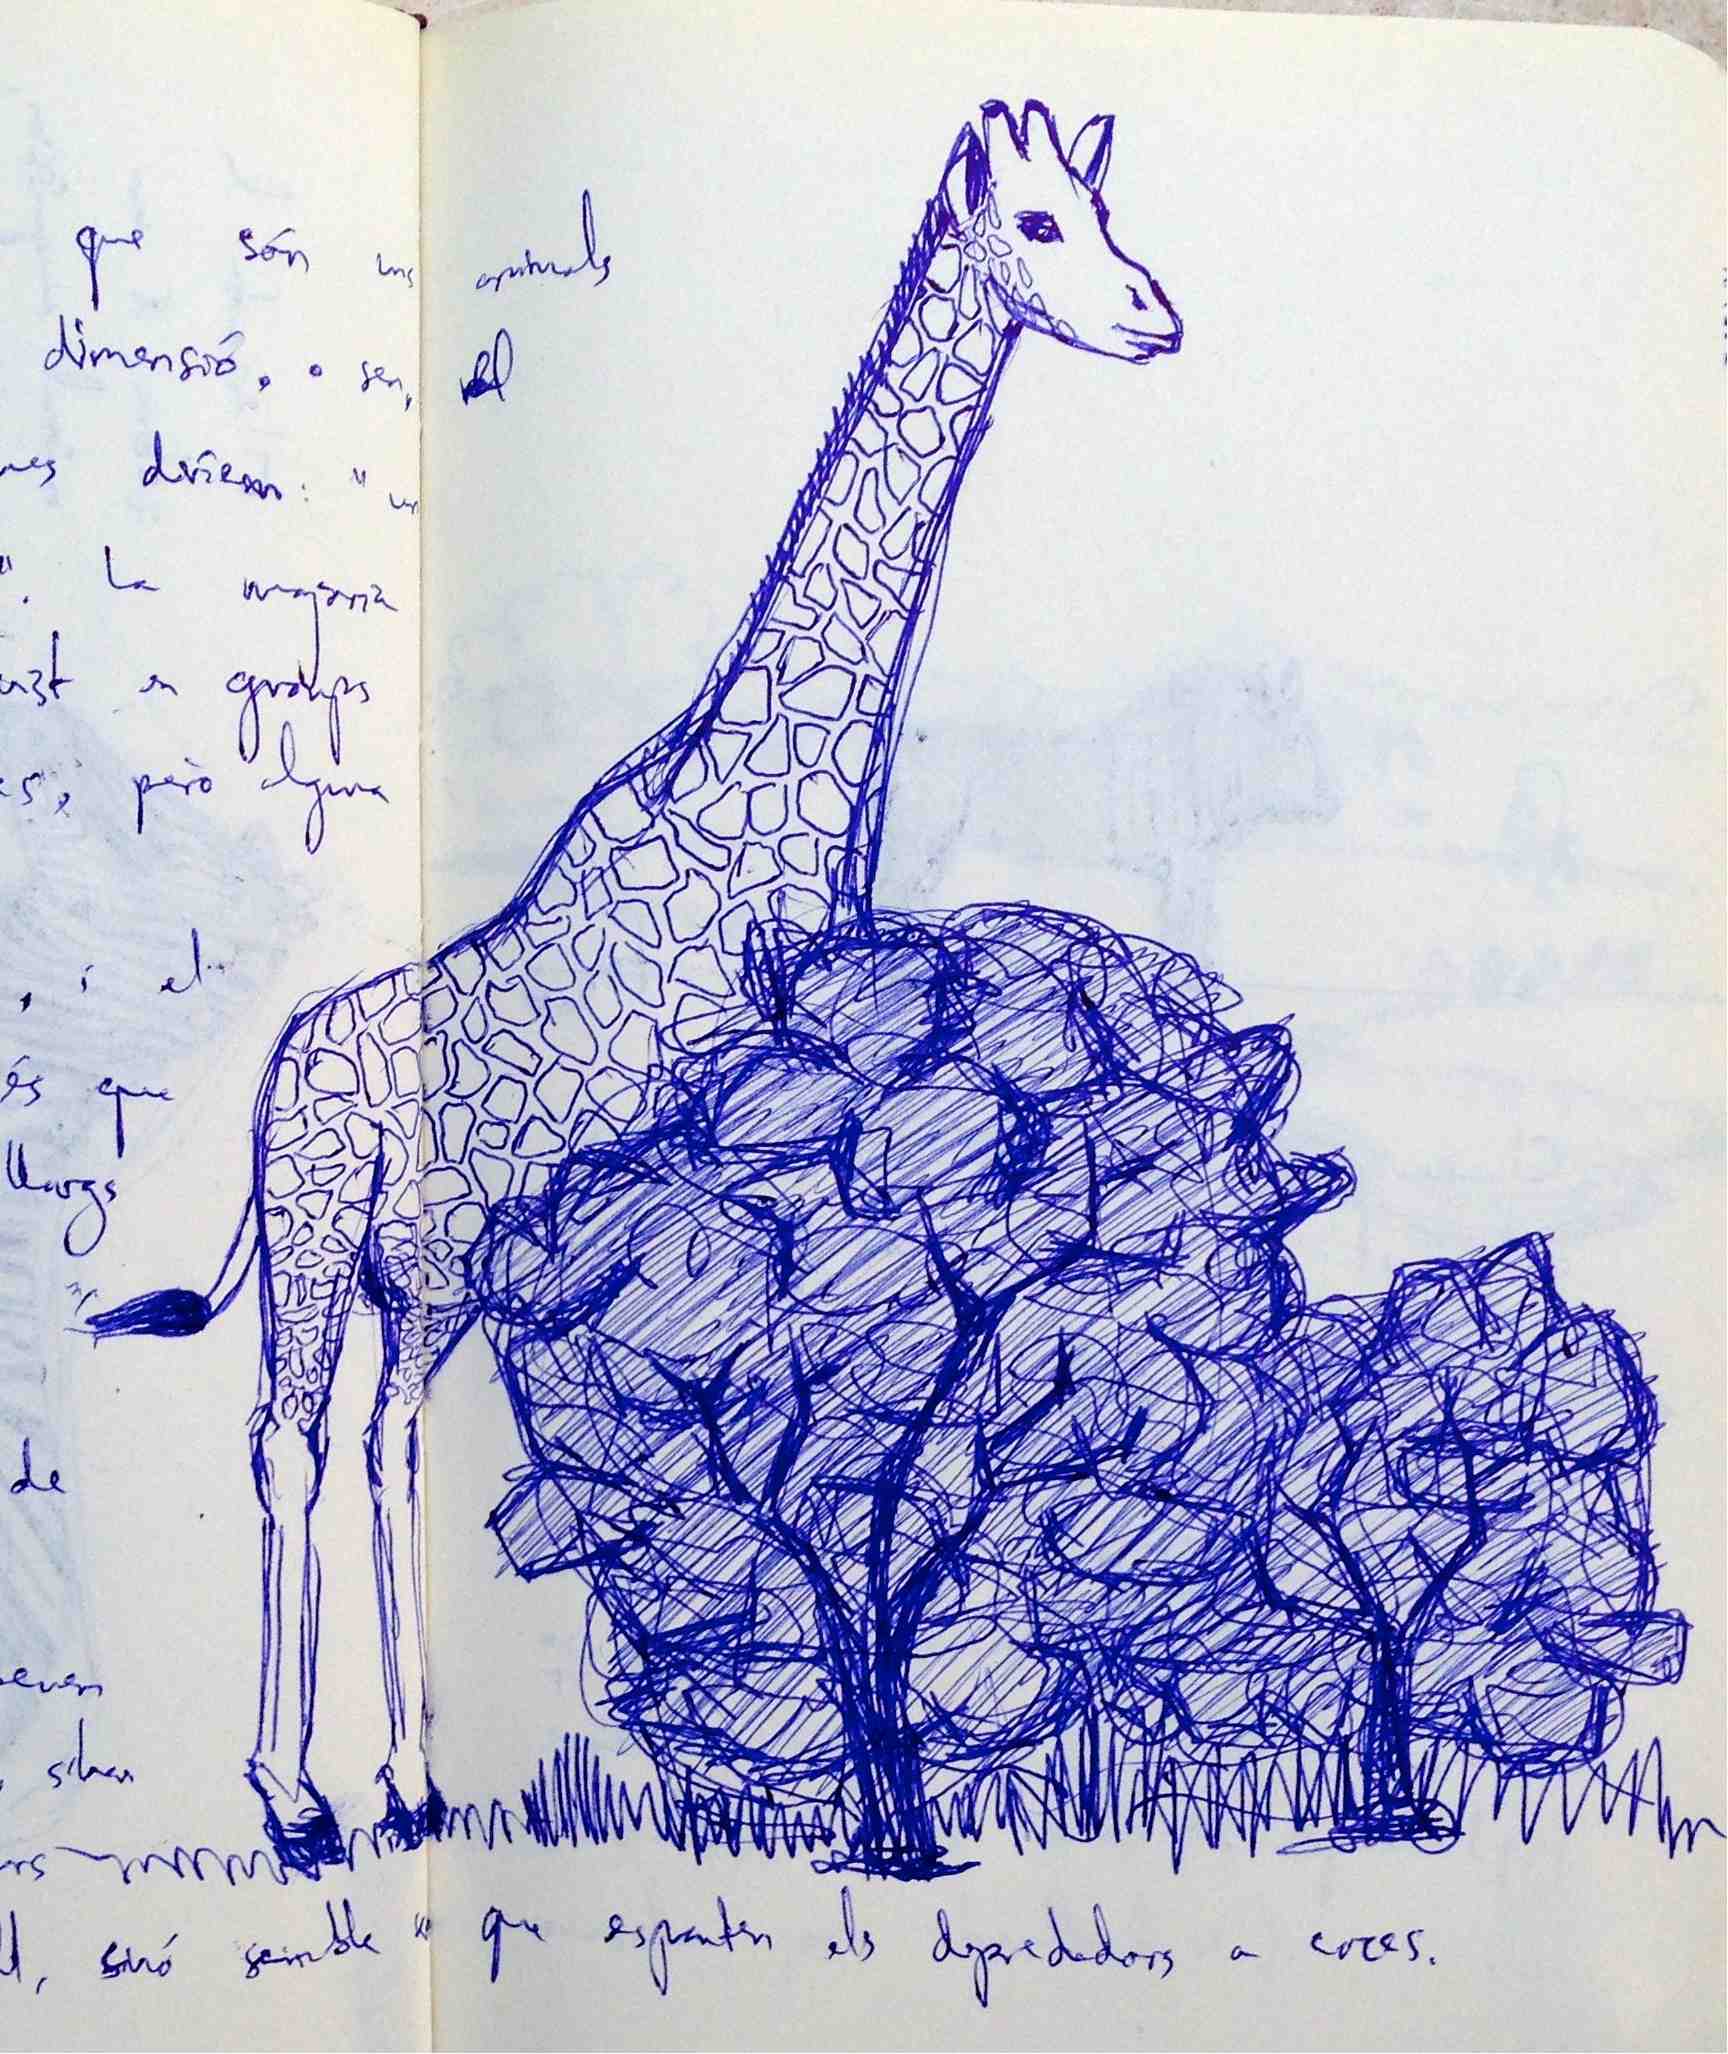 que són uns animals
dimensió, o sea, el
diríem: "un
". La majoria
en grups
però alguna
, i el
és que
llargs
de
, sinó també que espanten els depredadors a coces.